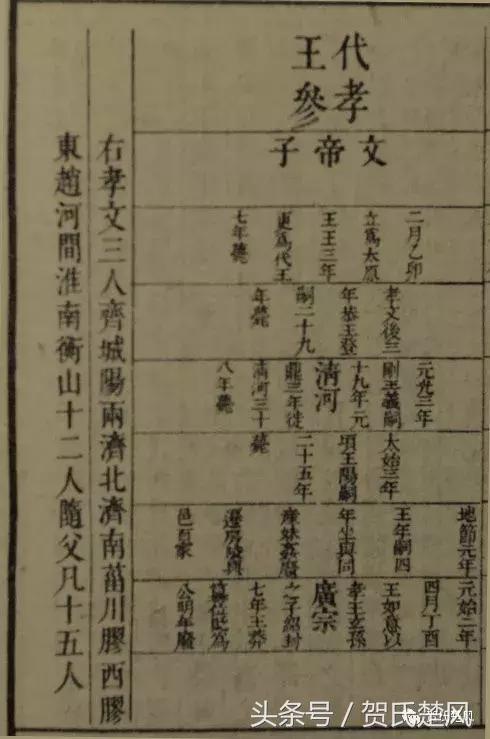 代孝
王參
文帝子
二月乙卯
立爲太原
王王三年
更爲代王
七年薨
孝文後三
年恭王登
嗣二十九
年薨
元光三年
剛王義嗣
十九年元
清河
鼎三年徙
清河三十
八年薨
太始三年
頃王陽嗣
二十五年
薨
地節元年
王年嗣四
年坐與同
產妹姦廢
遷房陵與
邑百家
元始二年
四月丁酉
王如意以
孝王玄孫
廣宗
之子紹封
七年王莽
篡位貶爲
公明年廢
右孝文三人齊城陽兩濟北濟南菑川膠西膠
東趙河間淮南衡山十二人隨父凡十五人
头条号／贺氏楚风